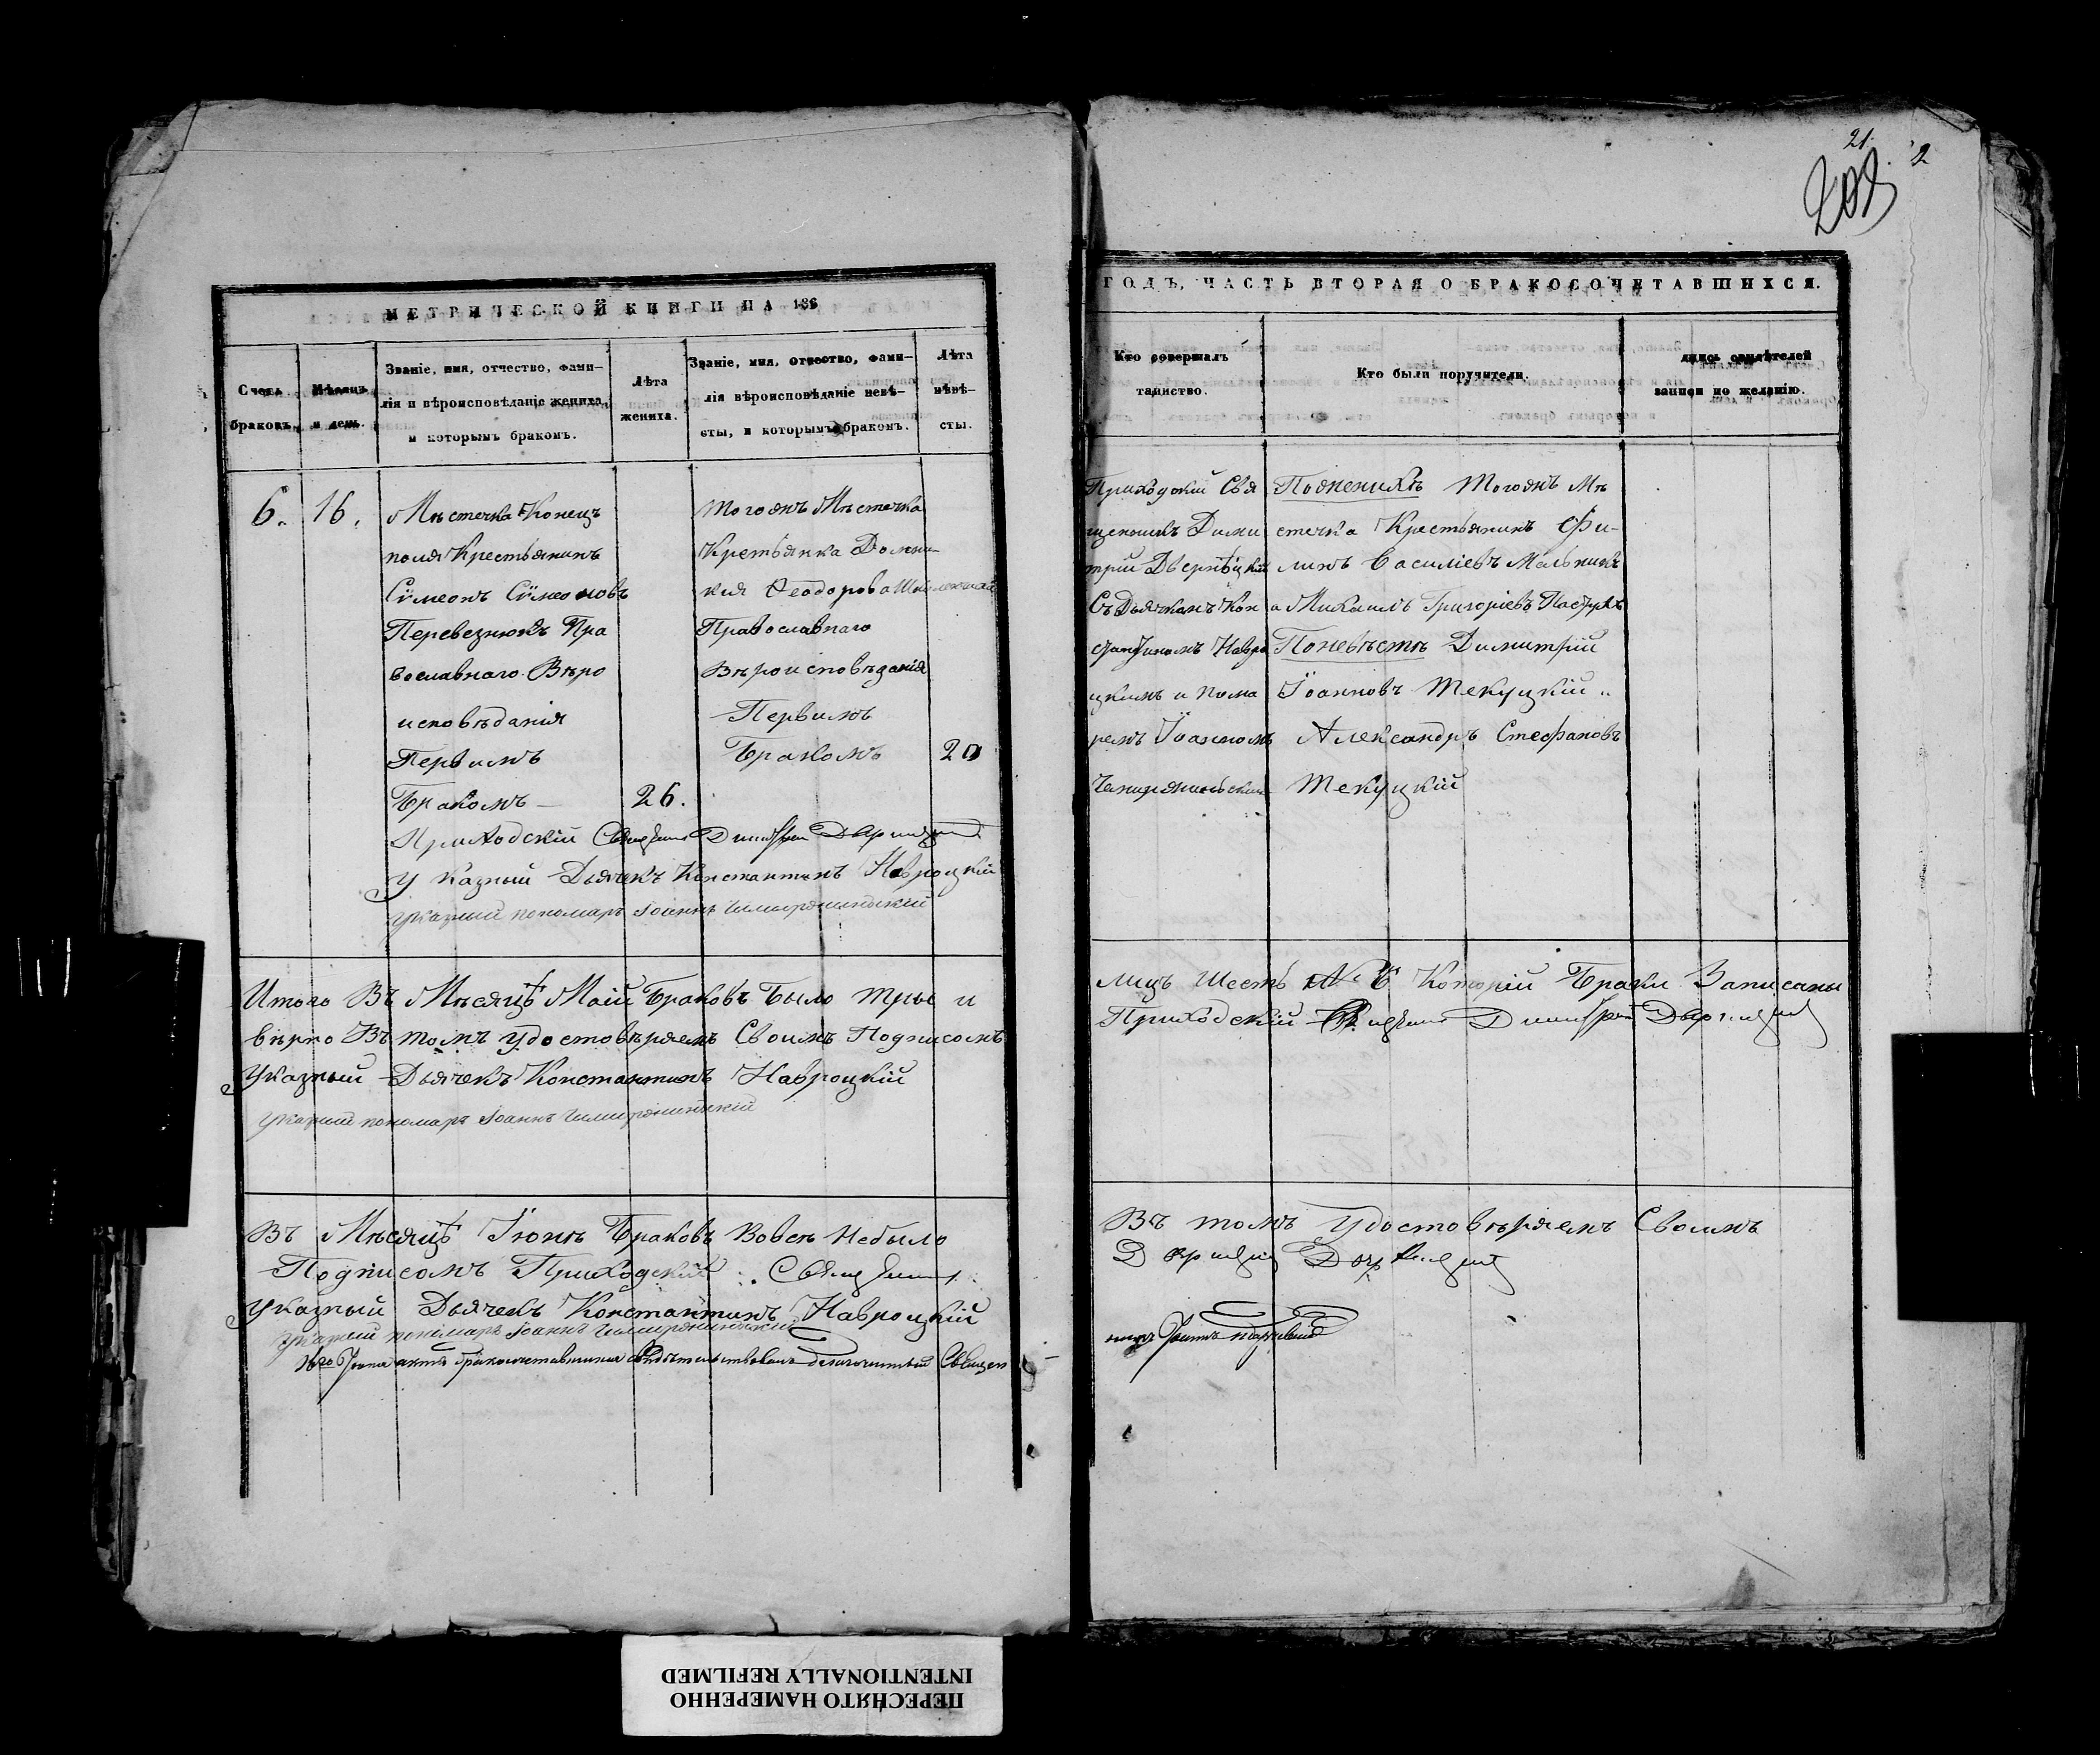 21.
2
МЕТРИЧЕСКОЙ КНИГИ НА 186
Счетъ
браковъ.
Мѣсяцъ
и день.
Званіе, имя, отчество, фами-
лія и вѣроисповѣданіе жениха
и которымъ бракомъ.
Лѣта
жениха.
Званіе, имя, отчество, фами-
лія вѣроисповѣданіе невѣ-
сты, и которымъ бракомъ.
Лѣта
невѣ-
сты.
6. 16.
Мѣстечка Конец
поля Крестьянинъ
Сѵмеонъ Сѵмеоновъ
Перевезнюкъ Пра
вославнаго Вѣро
исповѣданія
Первимъ
Бракомъ 26.
Тогожъ Мѣстечка
Кретьянка Домни
кия Ѳеодорова
Православнаго
Вѣроисповѣданія
Первимъ
Бракомъ 20
Приходскій Священникъ Димитрій
Указный Дьячекъ Константинъ Навроцкій
указный пономарь Іоаннъ
Итого Въ Мѣсяцѣ Маій Браковъ Было Тры и
вѣрно Въ томъ удостовѣряемъ Своимъ Подписомъ
Указный Дьячекъ Константинъ Навроцкій
указный пономарь Іоаннъ
Въ Мѣсяцѣ Іюнѣ Браковъ Вовсѣ Небыло
Подписомъ Приходскій Священникъ
Указный Дьячекъ Константинъ Навроцкій
указный пономарь Іоаннъ
Іюня актъ бракосочетавшихся свидѣтельствовалъ благочинный Священ
ГОДЪ, ЧАСТЬ ВТОРАЯ О БРАКОСОЧЕТАВШИХСЯ.
Кто совершалъ
таинство.
Кто были поручители.
записи по желанію.
Приходскій Свя
щенникъ Дими
трій Дверницкій
Съ Дьячкомъ Кон
стантиномъ Навро
цкимъ и Пона
ремъ Іоанномъ
Поженихѣ Тогожъ Мѣ
стечка Крестьянинъ Фи-
липъ Василіевъ Мальникъ
и Михаилъ Григоріевъ Пастухъ
Поневѣстѣ Димитрій
Іоанновъ Текуцкій
Александръ Стефановъ
Текуцкій
лицъ Шесть № 6 Которій Браки Записаны
Приходскій Священникъ Димитрій
Въ томъ Удостовѣряемъ Своимъ
ПЕРЕСНЯТО НАМЕРЕННО
INTENTIONALLY REFILMED